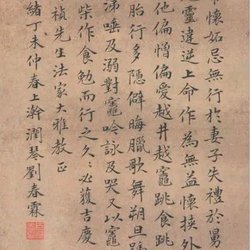 常懷妬忌無行於妻子失禮於舅
違靈違逆上命作為無益懷挾外
他偏憎偏愛越井越竈跳食跳
胎行多隱僻晦臘歌舞朔旦號
涕唾及溺對竈吟詠及哭又以竈
柴作食勉而行之久久必獲吉慶
楨先生法家大雅教正
緒丁未仲春上澣潤琴劉春霖